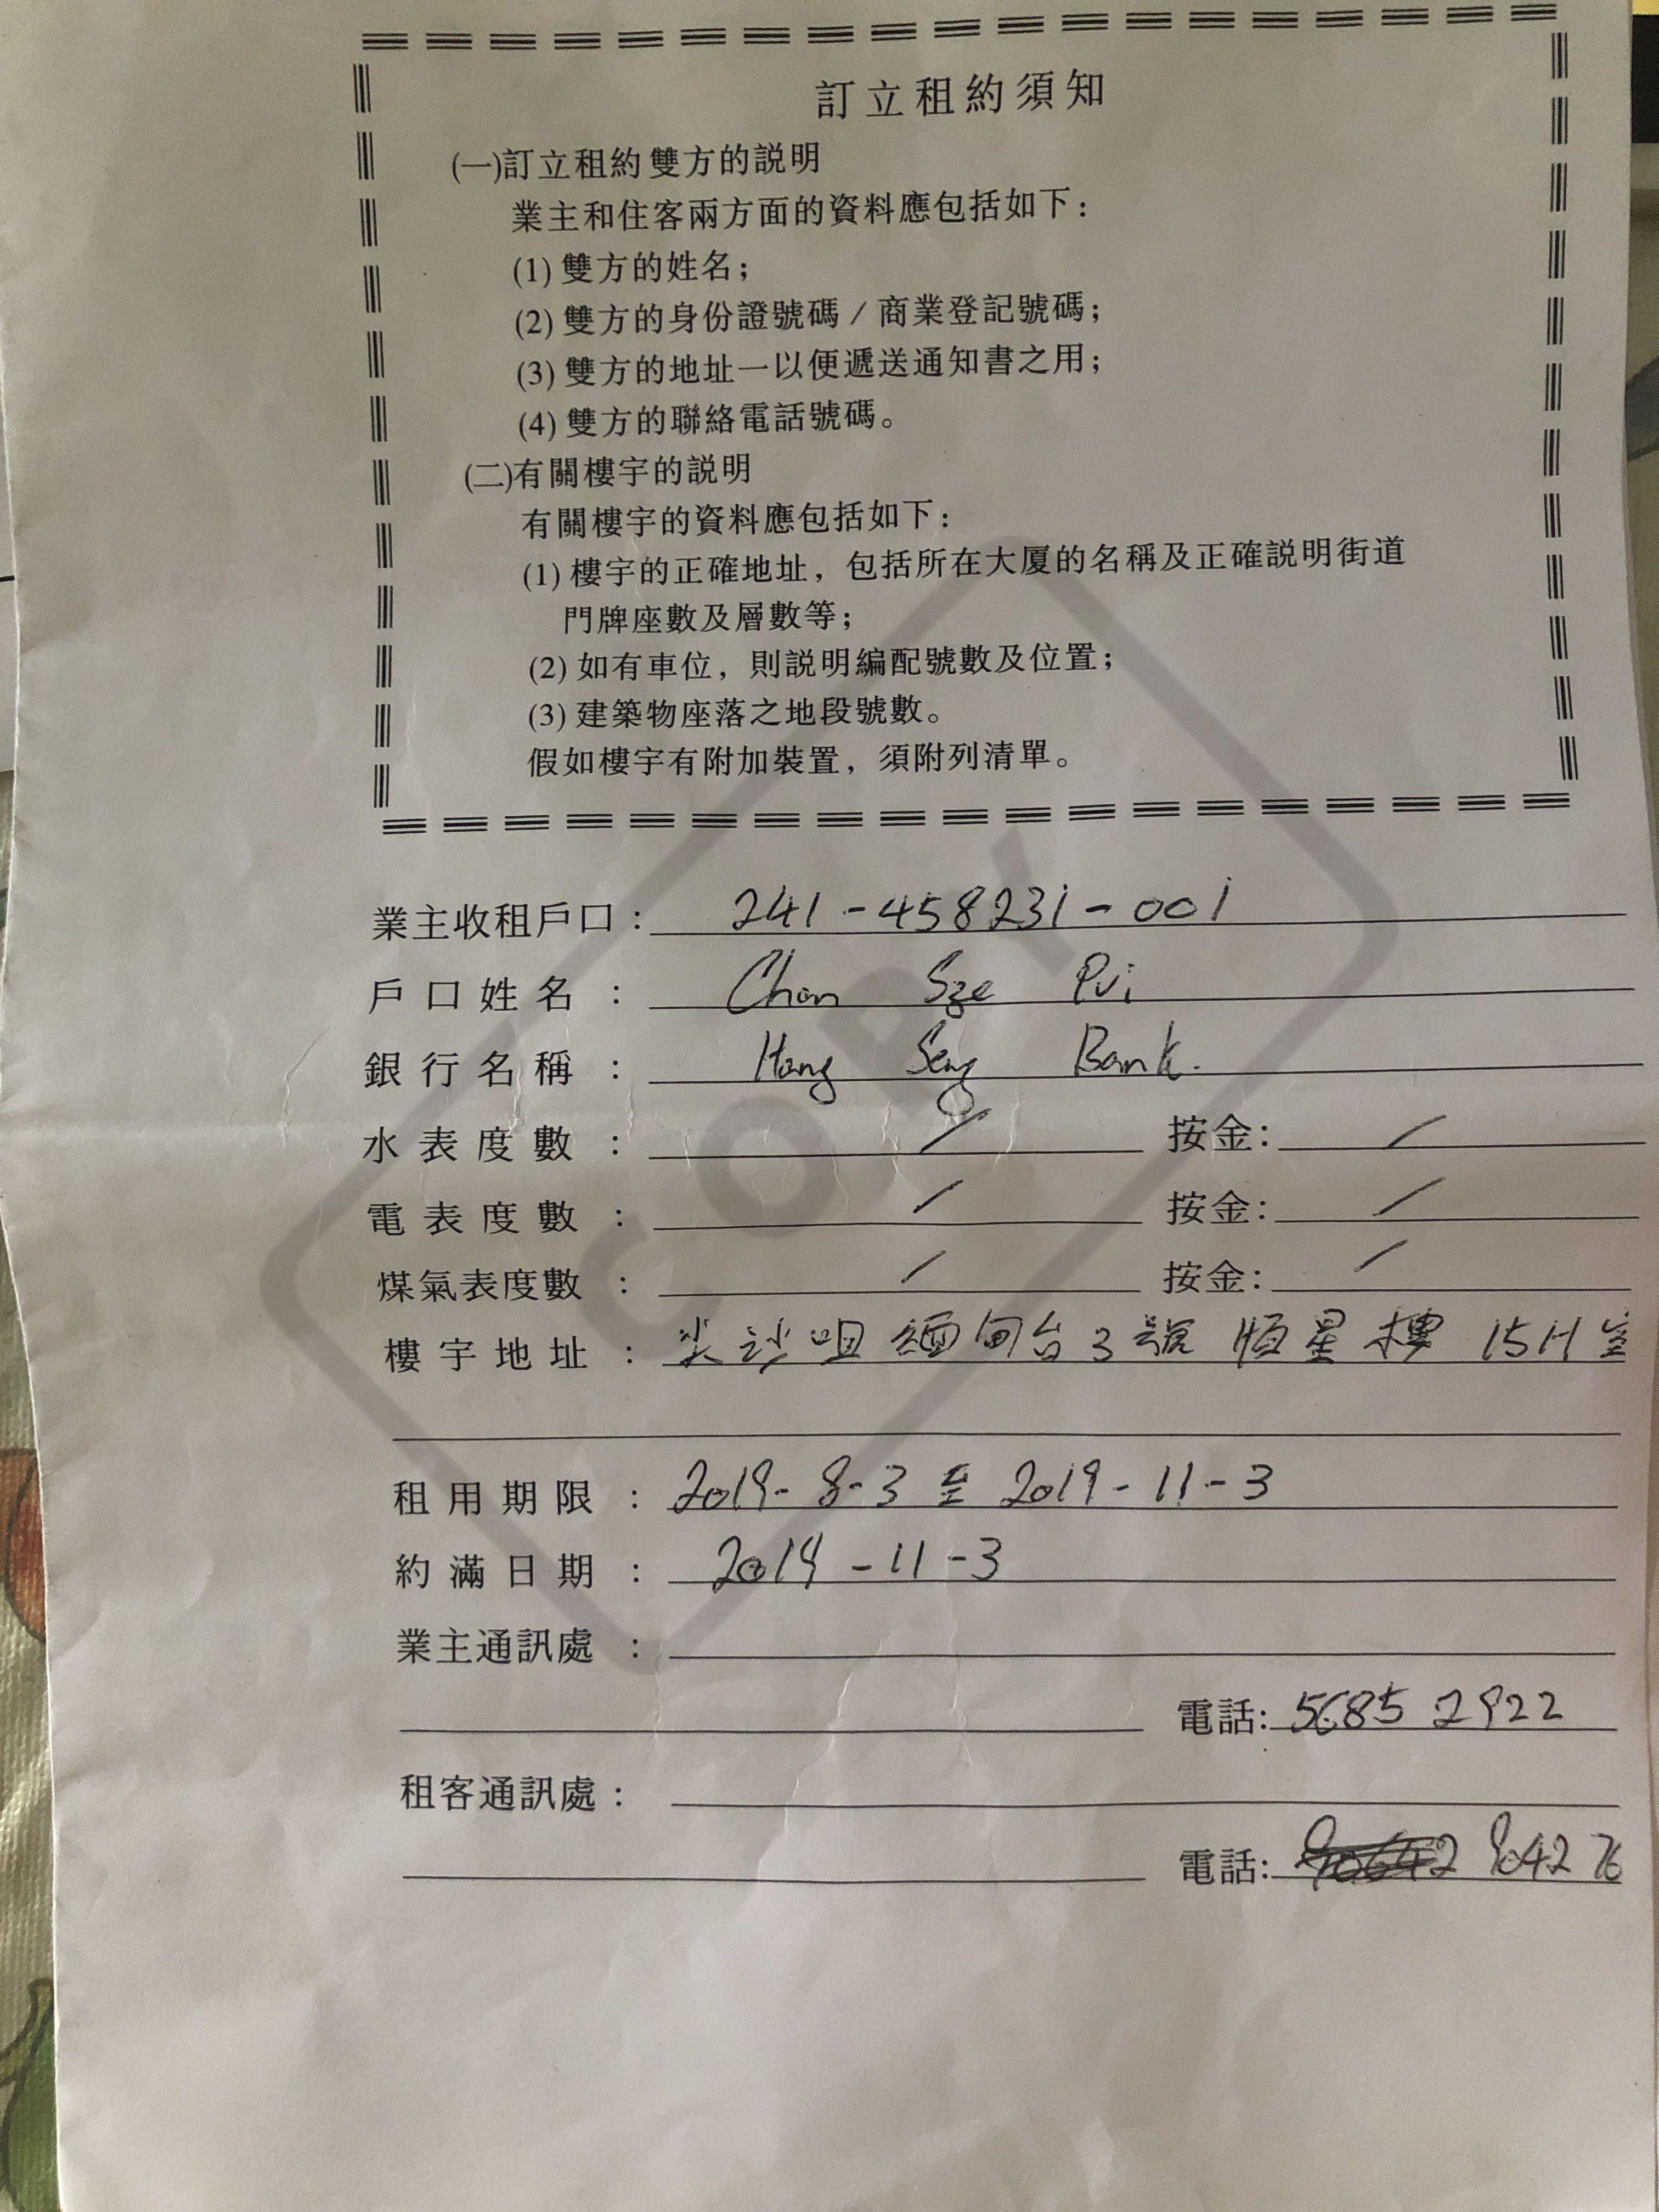 訂立租約須知
(一)訂立租約雙方的説明
業主和住客兩方面的資料應包括如下：
(1) 雙方的姓名；
(2) 雙方的身份證號碼 / 商業登記號碼；
(3) 雙方的地址一以便遞送通知書之用；
(4) 雙方的聯絡電話號碼。
(二)有關樓宇的説明
有關樓宇的資料應包括如下：
(1) 樓宇的正確地址，包括所在大廈的名稱及正確説明街道
門牌座數及層數等；
(2) 如有車位，則説明編配號數及位置；
(3) 建築物座落之地段號數。
假如樓宇有附加裝置，須附列清單。
COPY
業主收租戶口： 241-458231-001
戶口姓名： Chan Sze Pui
銀行名稱： Hang Seng Bank.
水表度數： / 按金： /
電表度數： / 按金： /
煤氣表度數： / 按金： /
樓宇地址： 尖沙咀緬甸台3號 恒星樓 15H室
租用期限： 2019-8-3 至 2019-11-3
約滿日期： 2019-11-3
業主通訊處：
電話: 5685 2922
租客通訊處：
電話: